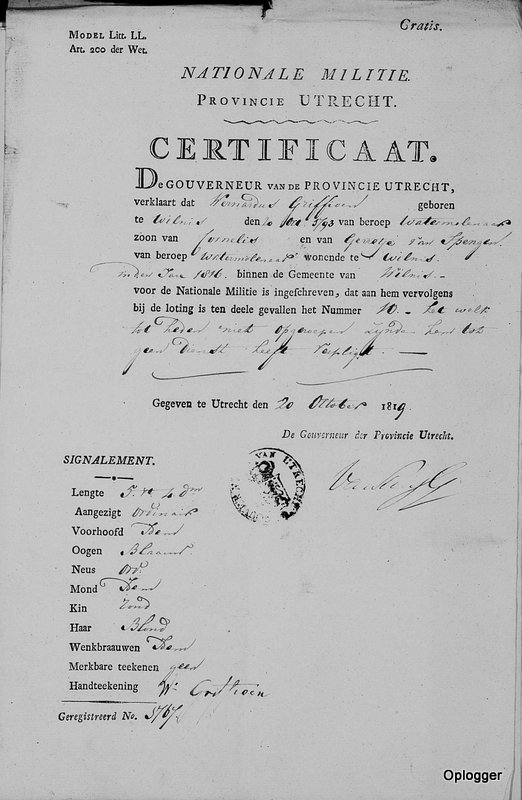 Gratis.
MODEL Litt. LL.
Art. 200 der Wet.
NATIONALE MILITIE.
PROVINCIE UTRECHT.
CERTIFICAAT.
DE GOUVERNEUR VAN DE PROVINCIE UTRECHT,
verklaart dat Wernardus Griffioen geboren
te Wilnis den 20 1793 van beroep Watermolenaar
zoon van Cornelis en van Spengen
van beroep Watermolenaar wonende te Wilnis
in den Jare 1816 binnen de Gemeente van Wilnis
voor de Nationale Militie is ingeschreven, dat aan hem vervolgens
bij de loting is ten deele gevallen het Nummer 10. – het welk
tot heden niet opgeroepen zynde hem tot
geen Dienst heeft verpligt. —
Gegeven te Utrecht den 20 October 1819.
De Gouverneur der Provincie Utrecht.
SIGNALEMENT.
VAN UTRECHT
Lengte 5. vt 4 dm
Aangezigt Ordinair
Voorhoofd Idem
Oogen Blaauw
Neus Ord.
Mond Idem
Kin rond
Haar Blond
Wenkbraauwen Idem
Merkbare teekenen geen
Handteekening W.
Geregistreerd No.
Oplogger